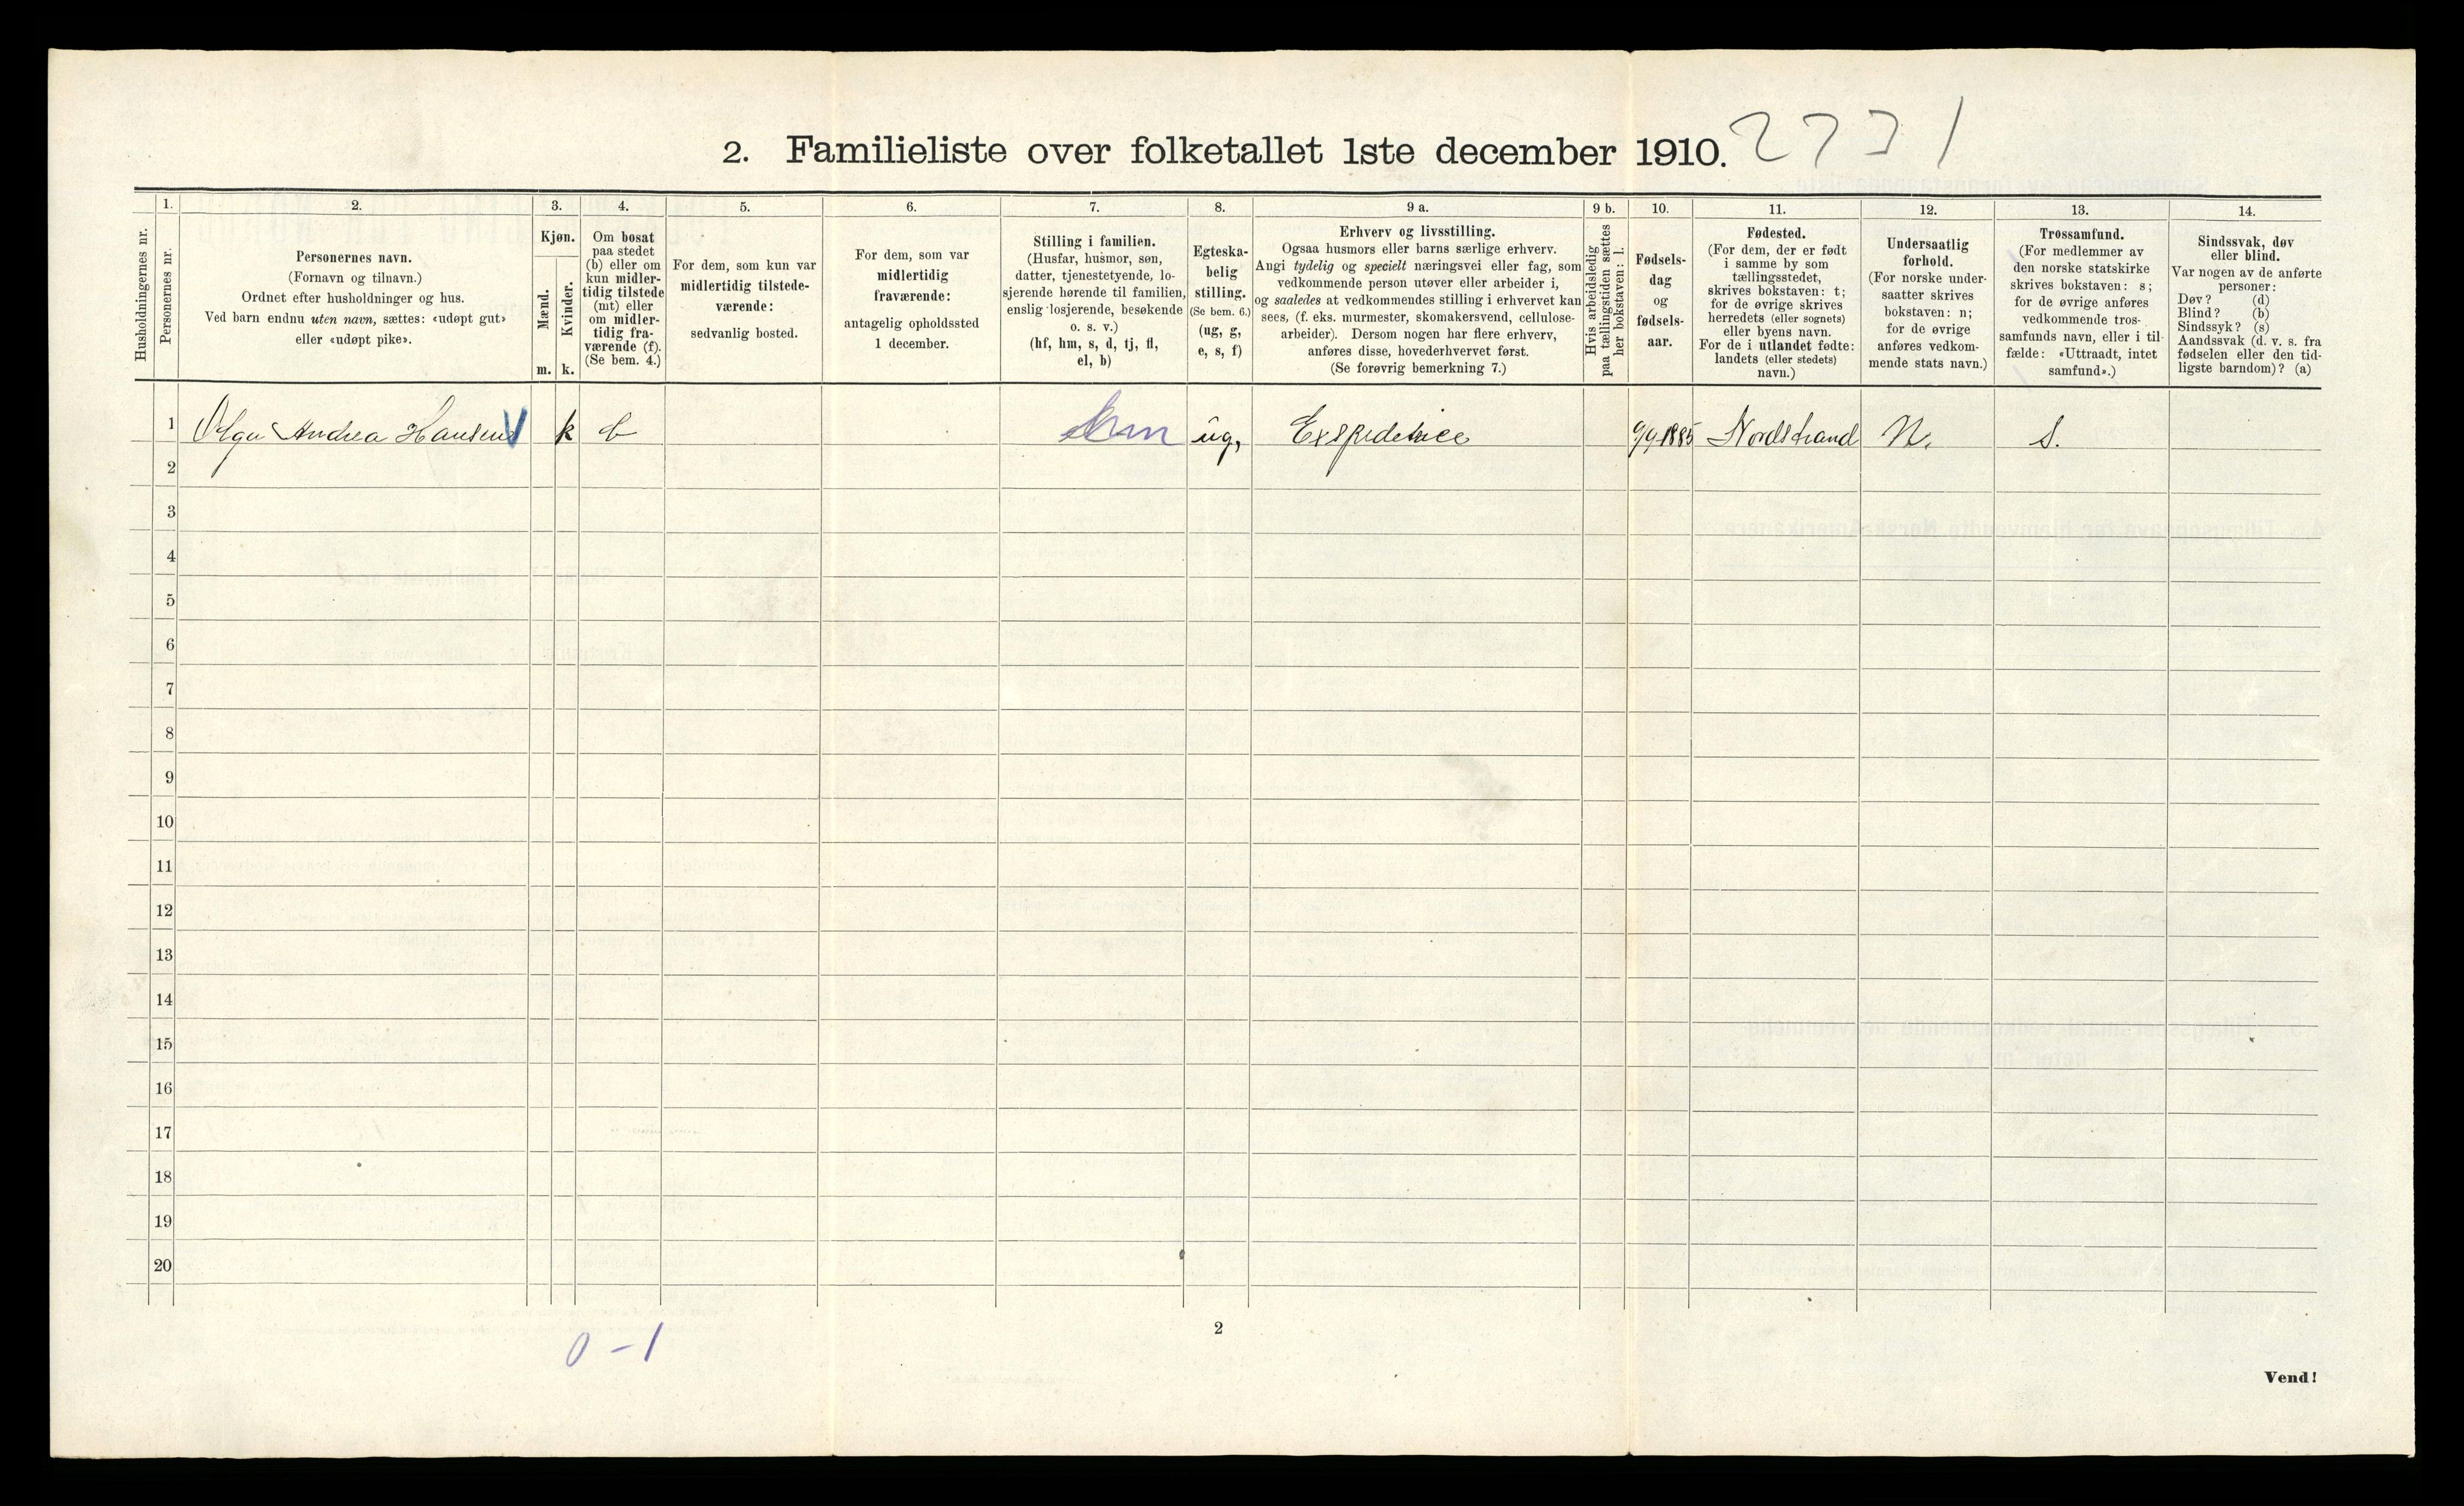 2. Familieliste over folketallet 1ste december 1910. 2771
Husholdningernes nr.
1.
Personernes nr.
2.
Personernes navn.
(Fornavn og tilnavn.)
Ordnet efter husholdninger og hus.
Ved barn endnu uten navn, sættes: «udøpt gut»
eller «udøpt pike».
3.
Kjøn.
Mænd.
Kvinder.
m. k.
4.
Om bosat
paa stedet
(b) eller om
kun midler-
tidig tilstede
(mt) eller
om midler-
tidig fra-
værende (f).
(Se bem. 4.)
5.
For dem, som kun var
midlertidig tilstede-
værende:
sedvanlig bosted.
6.
For dem, som var
midlertidig
fraværende:
antagelig opholdssted
1 december.
7.
Stilling i familien.
(Husfar, husmor, søn,
datter, tjenestetyende, lo-
sjerende hørende til familien,
enslig losjerende, besøkende
o. s. v.)
(hf, hm, s, d, tj, fl,
el, b)
8.
Egteska-
belig
stilling.
(Se bem. 6.)
(ug, g,
e, s, f)
9 a.
Erhverv og livsstilling.
Ogsaa husmors eller barns særlige erhverv.
Angi tydelig og specielt næringsvei eller fag, som
vedkommende person utøver eller arbeider i,
og saaledes at vedkommendes stilling i erhvervet kan
sees, (f. eks. murmester, skomakersvend, cellulose-
arbeider). Dersom nogen har flere erhverv,
anføres disse, hovederhvervet først.
(Se forøvrig bemerkning 7.)
9 b.
Hvis arbeidsledig
paa tællingstiden sættes
her bokstaven: l.
10.
Fødsels-
dag
og
fødsels-
aar.
11.
Fødested.
(For dem, der er født
i samme by som
tællingsstedet,
skrives bokstaven: t;
for de øvrige skrives
herredets (eller sognets)
eller byens navn.
For de i utlandet fødte:
landets (eller stedets)
navn.)
12.
Undersaatlig
forhold.
(For norske under-
saatter skrives
bokstaven: n;
for de øvrige
anføres vedkom-
mende stats navn.)
13.
Trossamfund.
(For medlemmer av
den norske statskirke
skrives bokstaven: s;
for de øvrige anføres
vedkommende tros-
samfunds navn, eller i til-
fælde: «Uttraadt, intet
samfund».)
14.
Sindssvak, døv
eller blind.
Var nogen av de anførte
personer:
Døv? (d)
Blind? (b)
Sindssyk? (s)
Aandssvak (d. v. s. fra
fødselen eller den tid-
ligste barndom)? (a)
1 Olga Andrea Hansen k b hm ug, Exspeditrice 9/9 1885 Nordstrand N. S.
2
3
4
5
6
7
8
9
10
11
12
13
14
15
16
17
18
19
20
0 - 1
2
Vend!